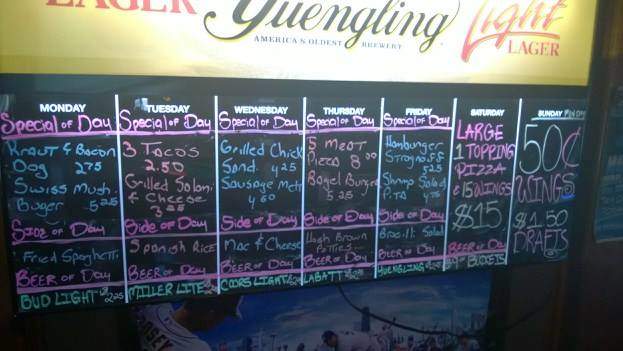 LAGER
Yuengling
AMERICA'S OLDEST BREWERY
Light
LAGER
MONDAY
Special of Day
Kraut & Bacon
Dog 275
Swiss Mush.
Buger 525
Side of Day
Fried Spaghetti
BEER of Day
BUD LIGHT
TUESDAY
Special of Day
3 TACO'S
2.50
Grilled Salami
& Cheese
3
Side of Day
Spanish Rice
BEER of Day
MILLER LITE
WEDNESDAY
Special of Day
Grilled Chick
Sand 425
Sausage
4 50
Side of Day
Mac & Cheese
BEER of Day
COORS LIGHT
THURSDAY
Special of Day
5 MEAT
Pizza 8
Bagel Burger
5 25
Side of Day
Hash Brown
Patties
BEER of Day
LABATT
FRIDAY
Special of Day
Hamburger
525
Shrimp Salad
Pita 4
Side of Day
Salad
BEER of Day
YUENGLING
SATURDAY
LARGE
1 TOPPING
PIZZA
& 15 WINGS
$15
BEER of Day
SUNDAY
50¢
WINGS
$1.50
DRAFTS